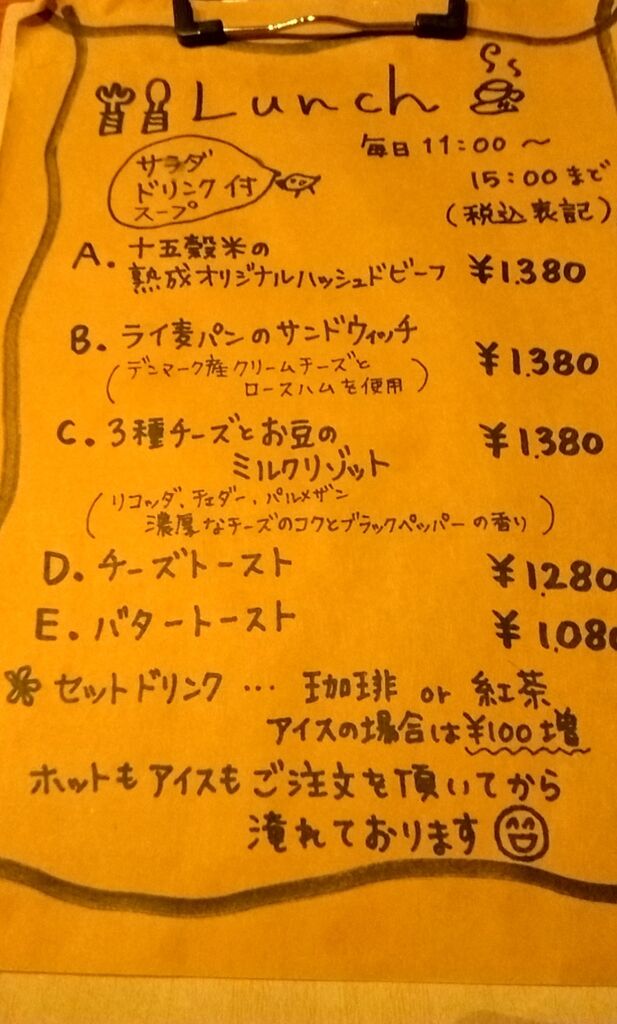 Lunch
毎日 11:00 ～
15:00 まで
(税込表記)
サラダ
ドリンク 付
スープ
A. 十五穀米の
熟成オリジナルハッシュドビーフ ¥1.380
B. ライ麦パンのサンドウィッチ ¥1.380
(デンマーク産クリームチーズと
ロースハムを使用)
C. 3種チーズとお豆の ¥1.380
ミルクリゾット
(リコッタ、チェダー、パルメザン
濃厚なチーズのコクとブラックペッパーの香り)
D. チーズトースト ¥1.280
E. バタートースト ¥1.080
セットドリンク … 珈琲 or 紅茶
アイスの場合は¥100増
ホットもアイスもご注文を頂いてから
淹れております